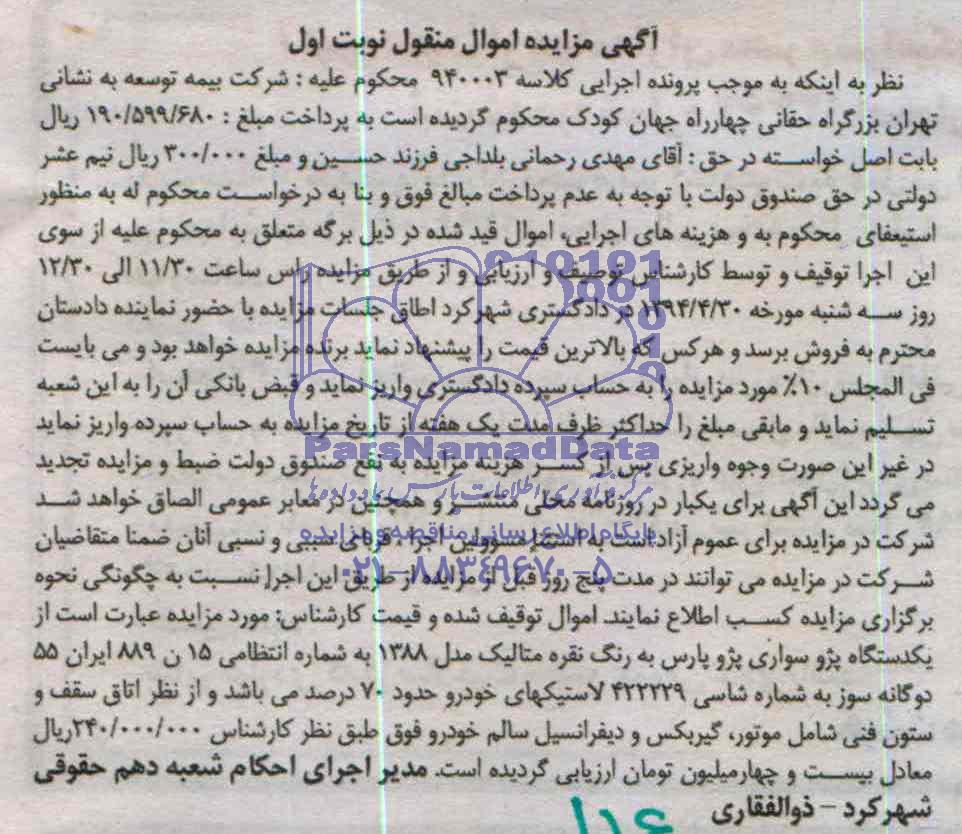 آگهی مزایده اموال منقول نوبت اول
نظر به اینکه به موجب پرونده اجرایی کلاسه ۹۴۰۰۰۳ محکوم علیه : شرکت بیمه توسعه به نشانی
تهران بزرگراه حقانی چهارراه جهان کودک محکوم گردیده است به پرداخت مبلغ : ۱۹۰/۵۹۹/۶۸۰ ریال
بابت اصل خواسته در حق : آقای مهدی رحمانی بلداجی فرزند حسین و مبلغ ۳۰۰/۰۰۰ ریال نیم عشر
دولتی در حق صندوق دولت با توجه به عدم پرداخت مبالغ فوق و بنا به درخواست محکوم له به منظور
استیعفای محکوم به و هزینه های اجرایی، اموال قید شده در ذیل برگه متعلق به محکوم علیه از سوی
این اجرا توقیف و توسط کارشناس توصیف و ارزیابی و از طریق مزایده راس ساعت ۱۱/۳۰ الی ۱۲/۳۰
روز سه شنبه مورخه ۱۳۹۴/۴/۳۰ در دادگستری شهرکرد اطاق جلسات مزایده با حضور نماینده دادستان
محترم به فروش برسد و هرکس که بالاترین قیمت را پیشنهاد نماید برنده مزایده خواهد بود و می بایست
فی المجلس ۱۰٪ مورد مزایده را به حساب سپرده دادگستری واریز نماید و قبض بانکی آن را به این شعبه
تسلیم نماید و مابقی مبلغ را حداکثر ظرف مدت یک هفته از تاریخ مزایده به حساب سپرده واریز نماید
در غیر این صورت وجوه واریزی پس از کسر هزینه مزایده به نفع صندوق دولت ضبط و مزایده تجدید
می گردد این آگهی برای یکبار در روزنامه محلی منتشر و همچنین در معابر عمومی الصاق خواهد شد
شرکت در مزایده برای عموم آزاد است به استثنا مسوولین اجرا ، قربای سببی و نسبی آنان ضمنا متقاضیان
شرکت در مزایده می توانند در مدت پنج روز قبل از مزایده از طریق این اجرا نسبت به چگونگی نحوه
برگزاری مزایده کسب اطلاع نمایند. اموال توقیف شده و قیمت کارشناس: مورد مزایده عبارت است از
یکدستگاه پژو سواری پژو پارس به رنگ نقره متالیک مدل ۱۳۸۸ به شماره انتظامی ۱۵ ن ۸۸۹ ایران ۵۵
دوگانه سوز به شماره شاسی ۴۲۲۲۲۹ لاستیکهای خودرو حدود ۷۰ درصد می باشد و از نظر اتاق سقف و
ستون فنی شامل موتور، گیربکس و دیفرانسیل سالم خودرو فوق طبق نظر کارشناس ۲۴۰/۰۰۰/۰۰۰ریال
معادل بیست و چهارمیلیون تومان ارزیابی گردیده است. مدیر اجرای احکام شعبه دهم حقوقی
شهرکرد – ذوالفقاری
ParsNamadData
مرکز فرآوری اطلاعات پارس نماد داده ها
پایگاه اطلاع رسانی مناقصه و مزایده
۰۲۱-۸۸۳۴۹۶۷۰-۵
۱۱۶